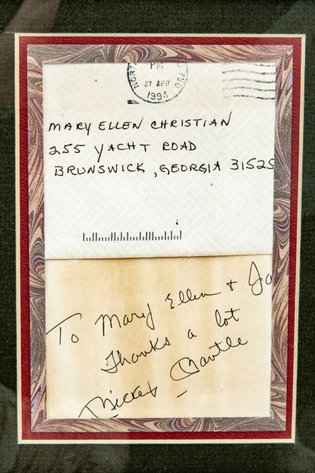 PM
27 APR
1994
MARY ELLEN CHRISTIAN
255 YACHT ROAD
BRUNSWICK, GEORGIA 31525
To Mary Ellen & Jo
Thanks a lot
Mickey Mantle